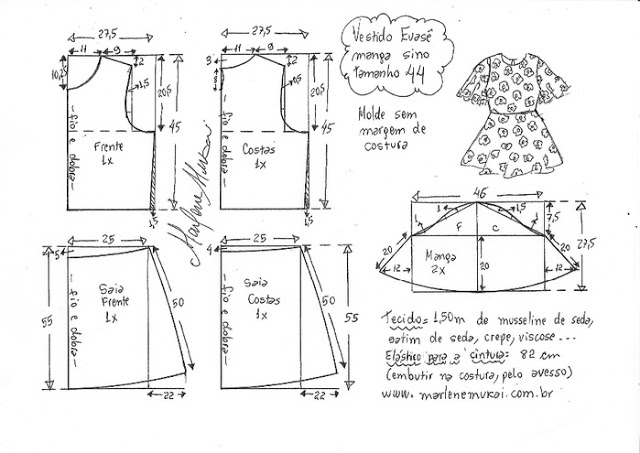 27,5
11
9
2
10,2
1,5
20,5
45
- fio e dobra -
Frente
1x
1,5
27,5
11
9
3
2
20,5
45
- fio e dobra -
Costas
1x
1,5
Marlene Mukai
Vestido Evasê
manga sino
tamanho 44
Molde sem
margem de
costura
46
1
1,5
7,5
1
1
F
C
27,5
20
20
12
Manga
2x
20
12
25
5
Saia
Frente
1x
50
55
- fio e dobra -
22
25
4
Saia
Costas
1x
50
55
- fio e dobra -
22
Tecido= 1,50m de musseline de seda,
cetim de seda, crepe, viscose...
Elástico para a cintura= 82 cm
(embutir na costura, pelo avesso)
www.marlenemukai.com.br